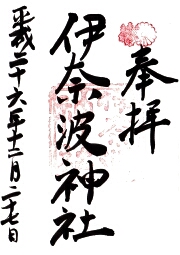 奉拝
伊奈波神社
平成二十六年十二月二十七日